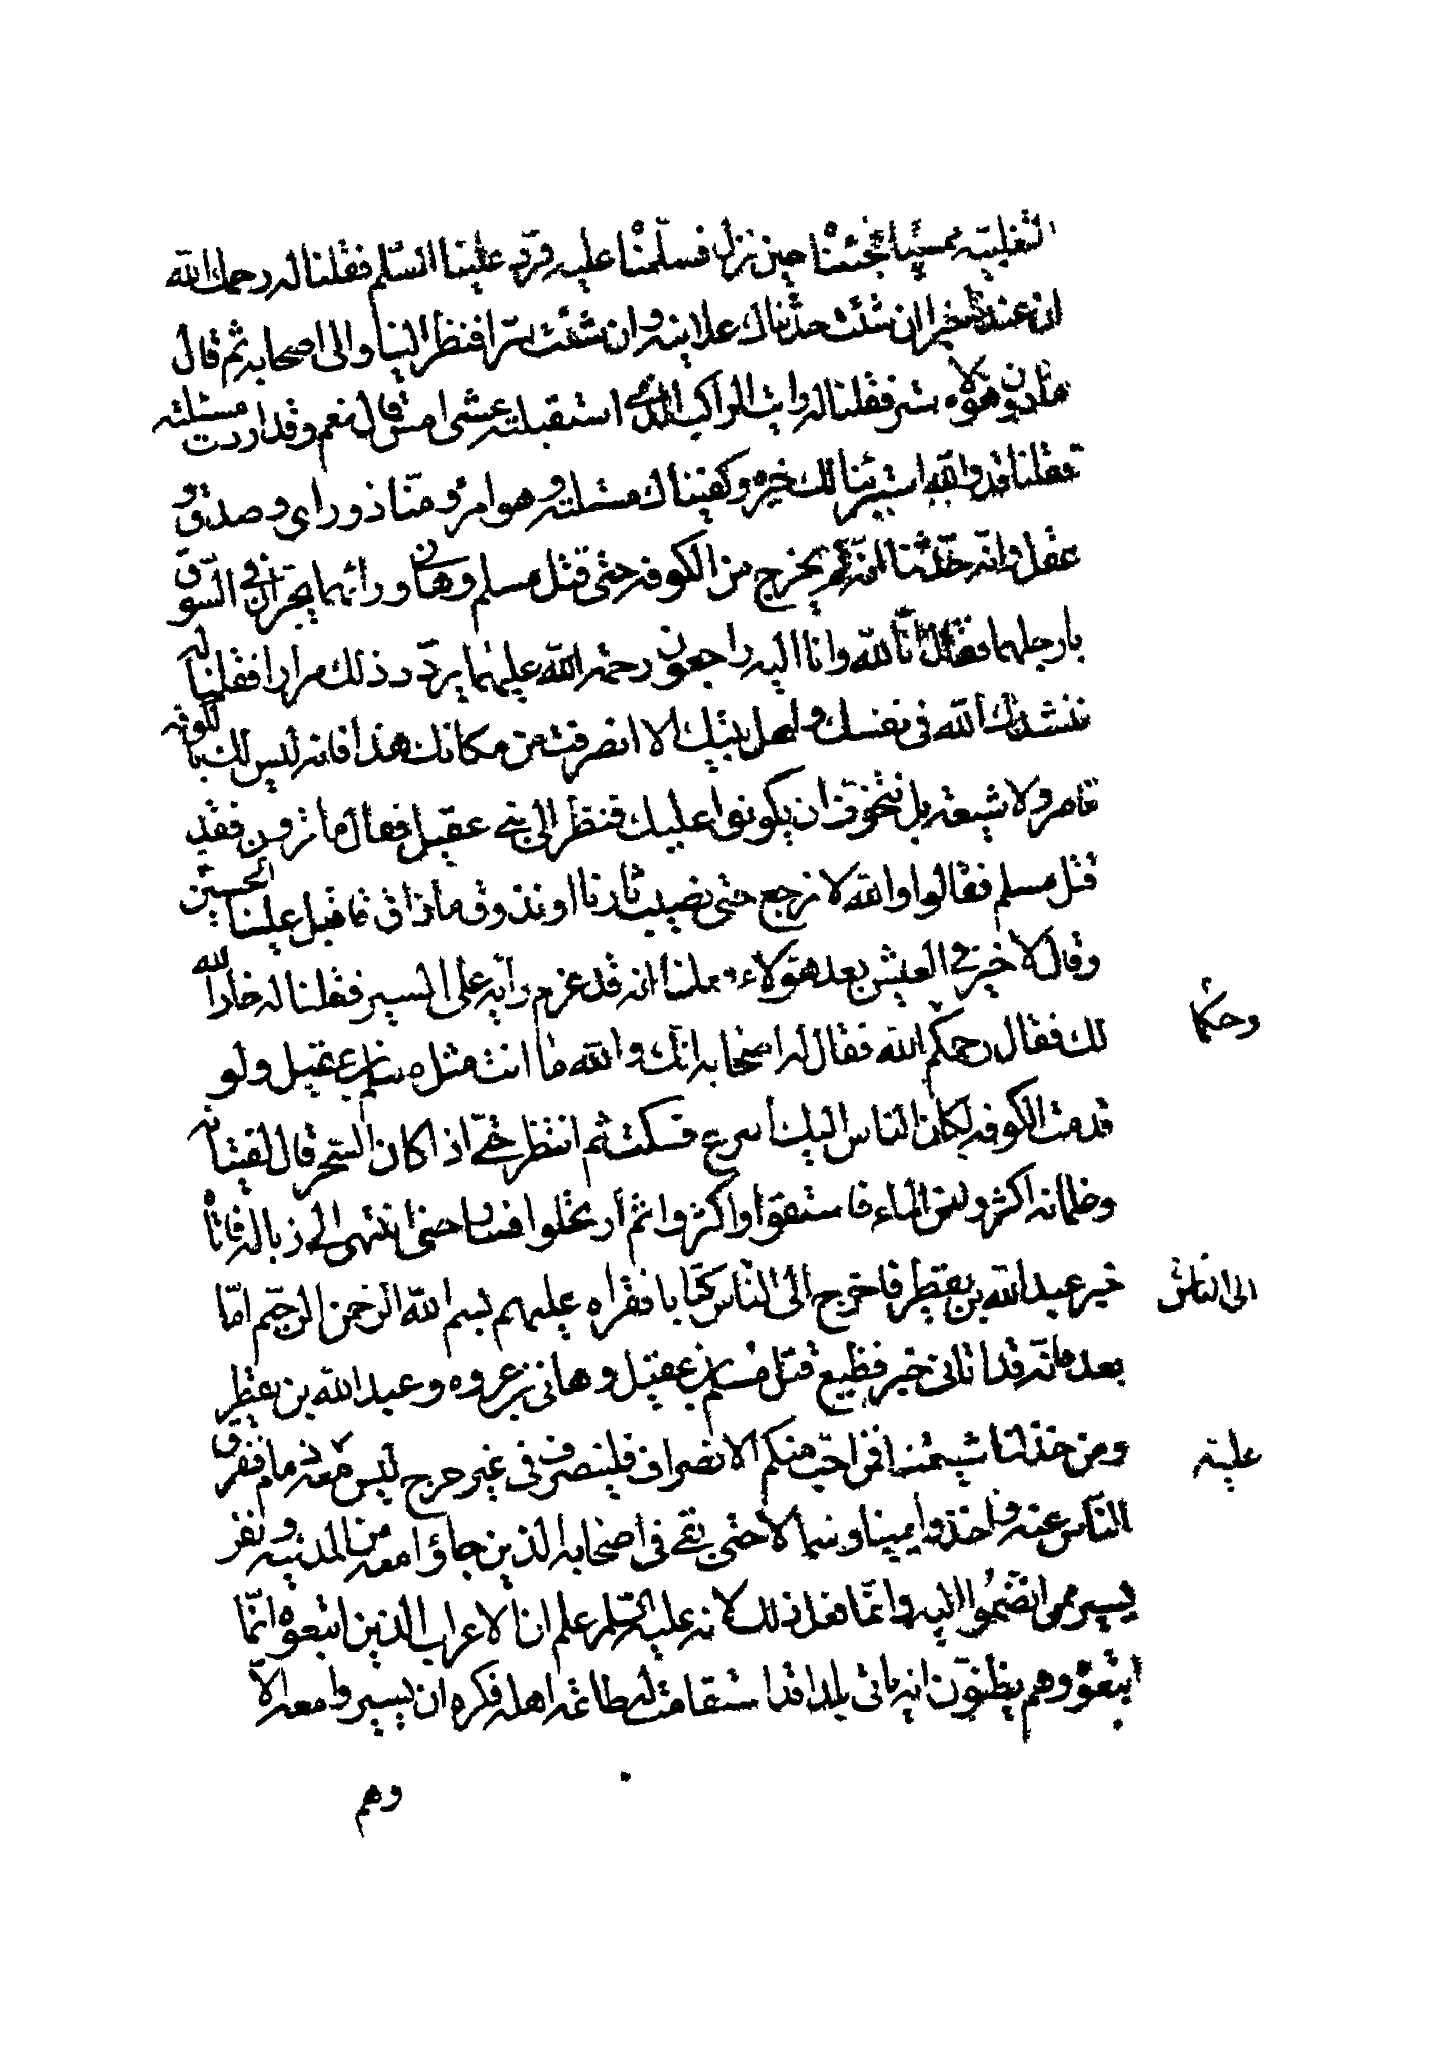 الثعلبيّه ممسيًا فجئناه حين نزل فسلّمنا عليه فردّ علينا السّلم فقلنا له رحمك الله
ان عندنا خبرا ان شئت حدثناك علانيه وان شئت سّرا فنظر الينا والى اصحابه ثم قال
مادون هؤلاء ستر فقلنا له رايت الراكب الذى استقبلته عشى امس قال نعم وقد اردت مسئلته
فقلنا قد والله استبرئنا لك خبره وكفيناك مسئلته وهو امرؤ منّا ذو راى وصدق و
عقل وانّه حدّثنا انه لم يخرج من الكوفه حتى قتل مسلم وهانى ورائهما يجران فى السّوق
بارجلهما فقال انّا لله وانا اليه راجعون رحمة الله عليهما يردّد ذلك مرارا فقلنا له
ننشدك الله فى نفسك واهل بيتك الا انصرفت من مكانك هذا فانه ليس لك بالكوفه
ناصر ولا شيعه بل نتخوف ان يكونوا عليك فنظر الى بنى عقيل فقال ما ترون فقد
قتل مسلم فقالوا والله لا نرجع حتى نصيب ثارنا او نذوق ما ذاق فاقبل علينا الحسين
وقال لا خير فى العيش بعد هؤلاء فعلمنا انه قد عزم رأيه على المسير فقلنا له خار الله
لك فقال رحمكم الله فقال له اصحابه انك والله ما انت مثل مسلم بن عقيل ولو
قدمت الكوفه لكان الناس اليك أسرع فسكت ثم انتظر حتى اذا كان السّحر قال لفتيانه
وغلمانه اكثروا من الماء فاستقوا واكثروا ثم أرتحلوا فسار حتى انتهى الى زباله فاتاه
خبر عبد الله بن يقطر فاخرج الى الناس كتابا فقراه عليهم بسم الله الرحمن الرحيم امّا
بعد فانّه قد اتانى خبر فظيع قتل مسلم بن عقيل وهانى بن عروه وعبد الله بن يقطر
ومن خذلنا شيعتنا فمن احبّ منكم الانصراف فلينصرف فى غير حرج ليس معه ذمام فتفرق
النّاس عنه واخذوا يمينا وشمالا حتى بقى فى اصحابه الذين جاؤا معه من المدينه ونفر
يسير ممن انضمّوا اليه وانمّا فعل ذلك لانه عليه السّلم علم ان الاعراب الذين اتبعوه انمّا
اتبعوه وهم يظنوّن انه ياتى بلدا قد استقامت له طاعة اهله فكره ان يسيروا معه الاّ
وهم
وحكما
الى الناس
عليه